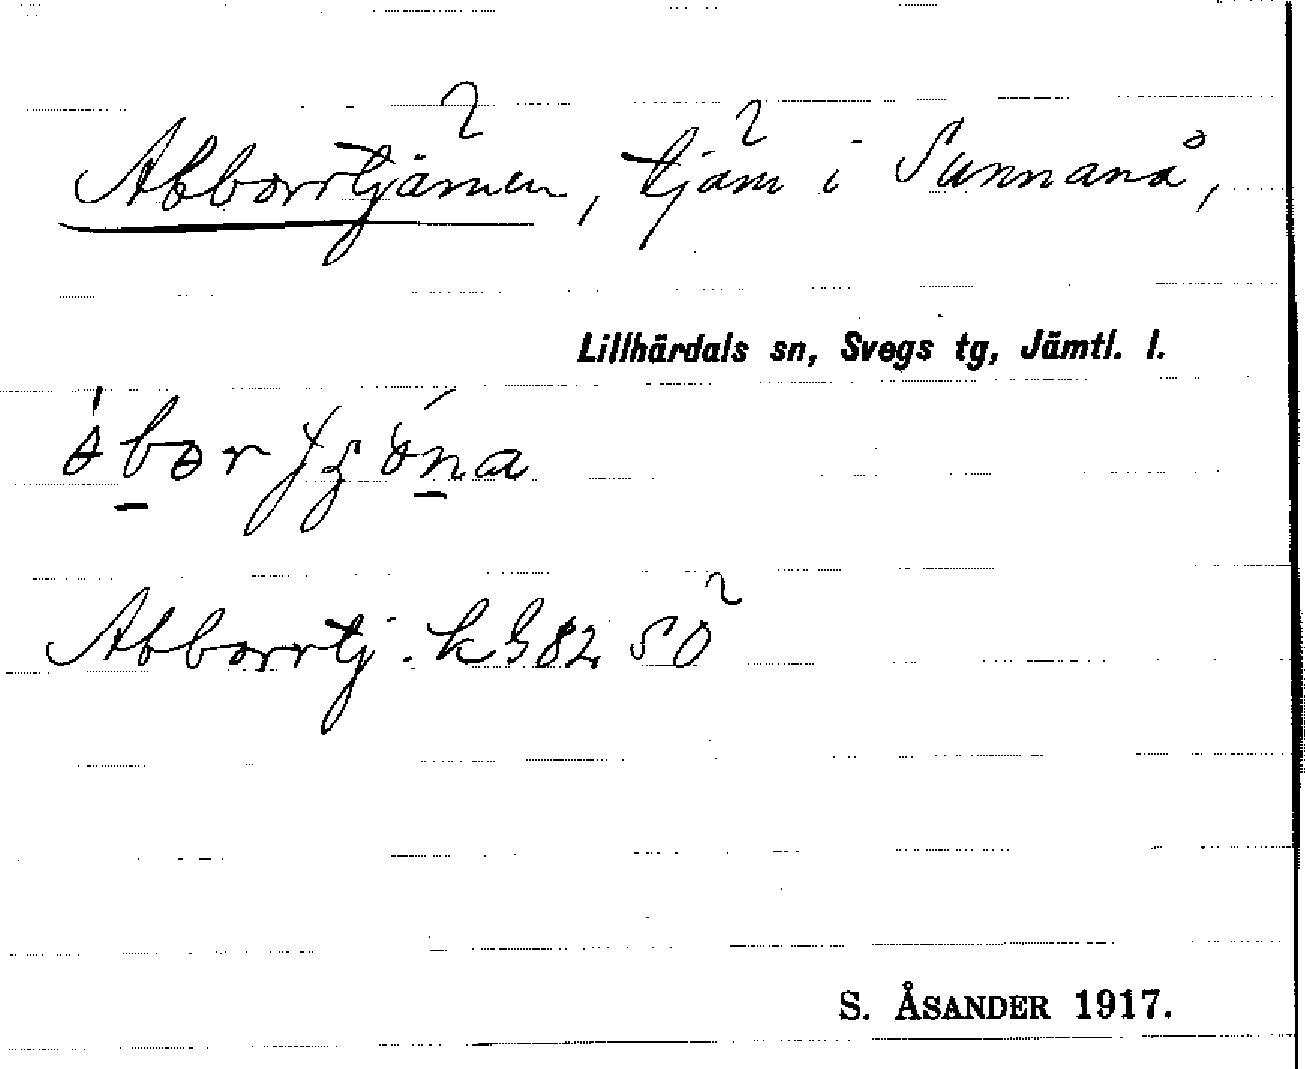 Abborrtjärnen, tjärn i Sunnanå,
Lillhärdals sn, Svegs tg, Jämtl. l.
Abborrtj. kG82 SO
S. ÅSANDER 1917.